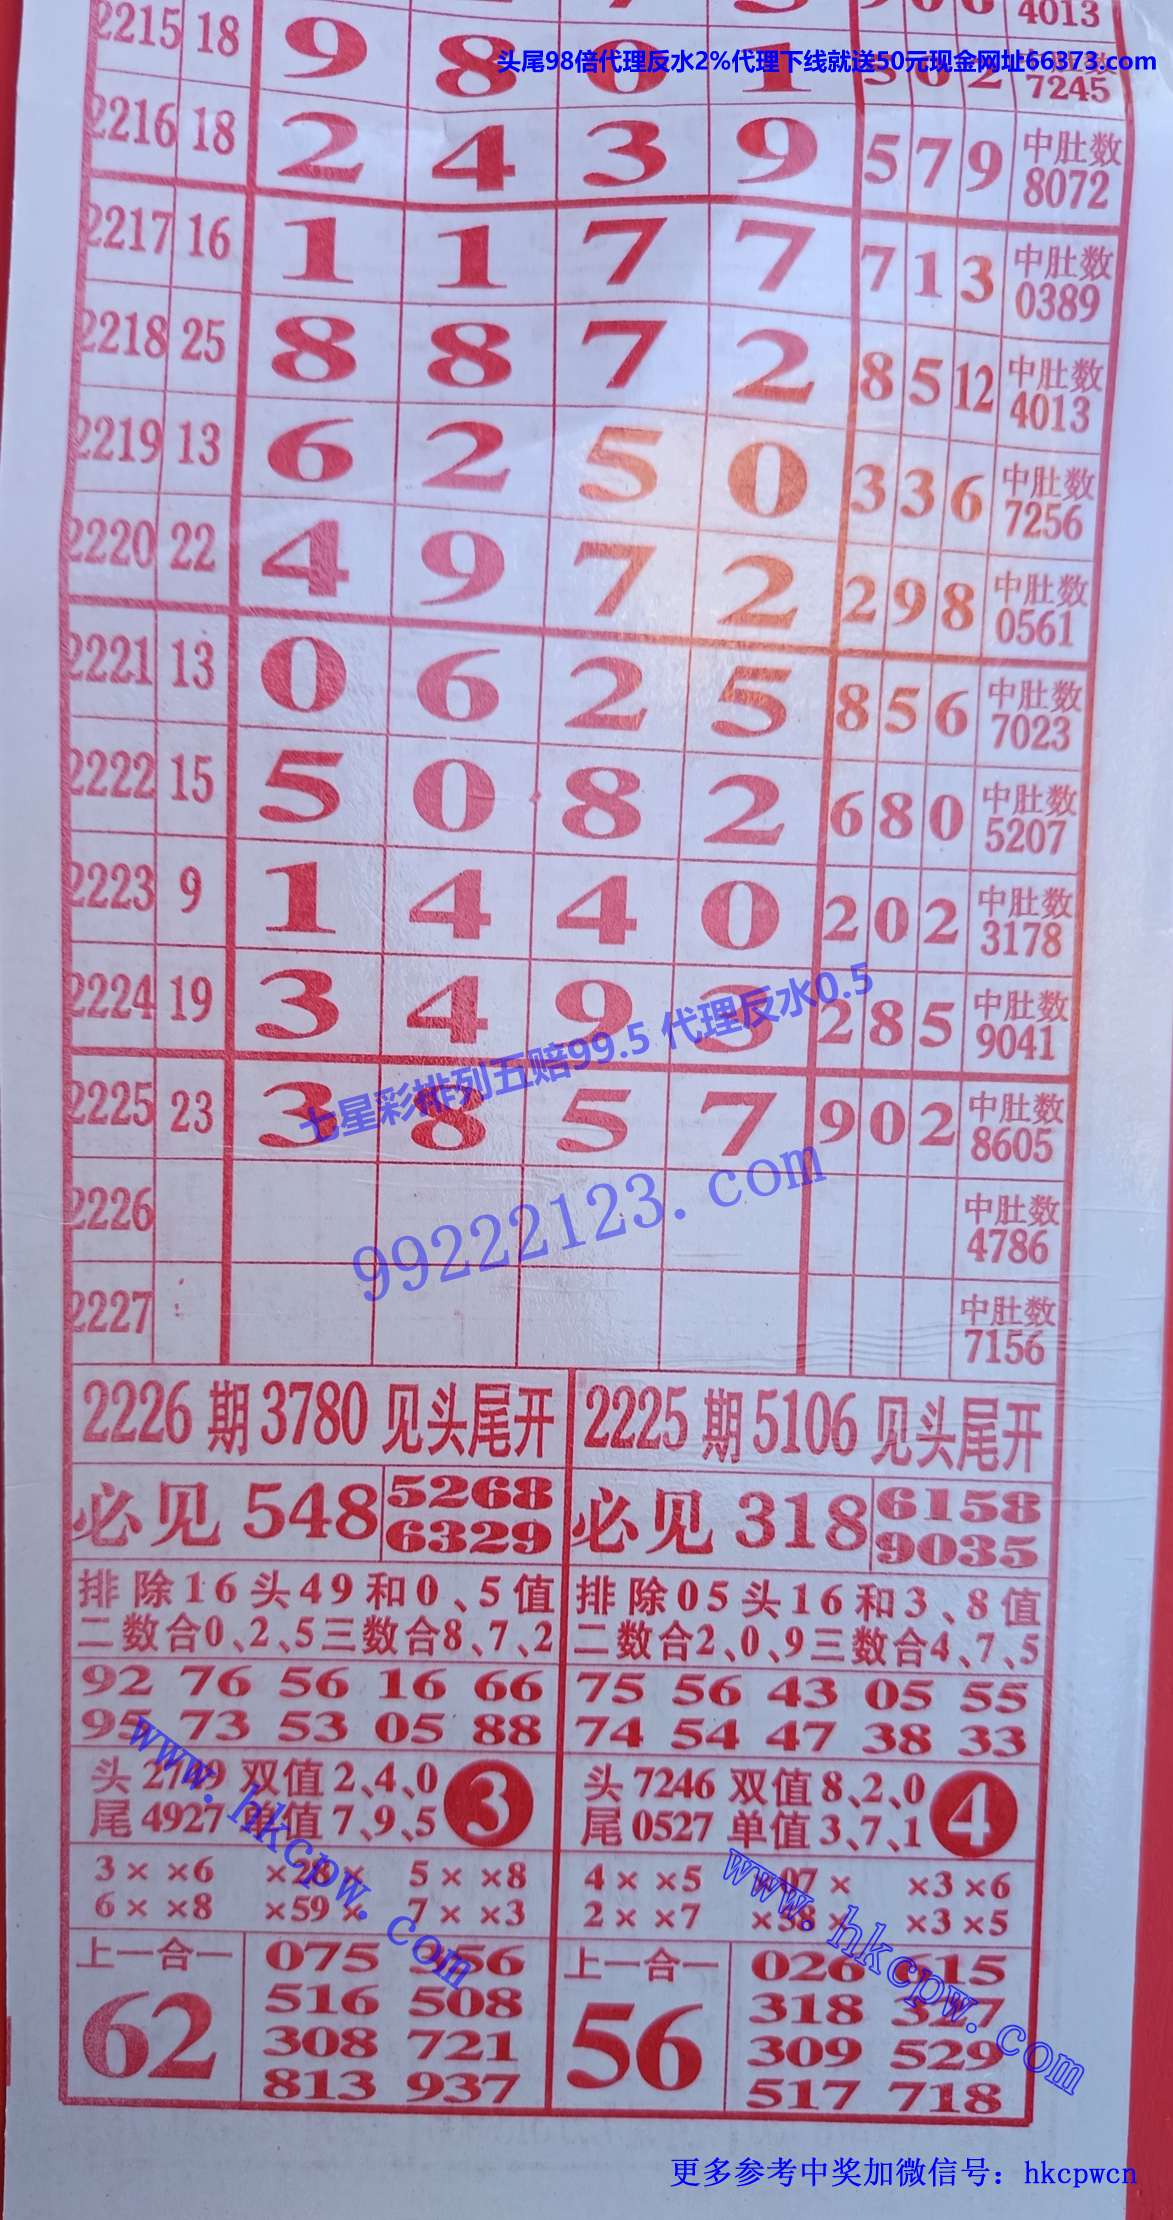 4013
2215 18 9 8 0 1 5 6 2 中肚数
7245
头尾98倍代理反水2%代理下线就送50元现金网址66373.com
2216 18 2 4 3 9 5 7 9 中肚数
8072
2217 16 1 1 7 7 7 1 3 中肚数
0389
2218 25 8 8 7 2 8 5 12 中肚数
4013
2219 13 6 2 5 0 3 3 6 中肚数
7256
2220 22 4 9 7 2 2 9 8 中肚数
0561
2221 13 0 6 2 5 8 5 6 中肚数
7023
2222 15 5 0 8 2 6 8 0 中肚数
5207
2223 9 1 4 4 0 2 0 2 中肚数
3178
2224 19 3 4 9 3 2 8 5 中肚数
9041
七星彩排列五赔99.5 代理反水0.5
2225 23 3 8 5 7 9 0 2 中肚数
8605
99222123.com
2226 中肚数
4786
2227 中肚数
7156
2226期3780见头尾开
必见548
5268
6329
排除16头49和0、5值
二数合0、2、5三数合8、7、2
92 76 56 16 66
95 73 53 05 88
头27 9 双值2、4、0
尾4927 单值7、9、5
3
3×× 6 ×28× 5×× 8
6×× 8 ×59× 7×× 3
上一合一
62
075 56
516 508
308 721
813 937
2225期5106见头尾开
必见318
6158
9035
排除05头16和3、8值
二数合2、0、9三数合4、7、5
75 56 43 05 55
74 54 47 38 33
头7246 双值8、2、0
尾0527 单值3、7、1
4
4×× 5 ×07× ×3×6
2×× 7 ×58× ×3×5
上一合一
56
026 615
318 327
309 529
517 718
www.hkcpw.com
www.hkcpw.com
更多参考中奖加微信号：hkcpwcn